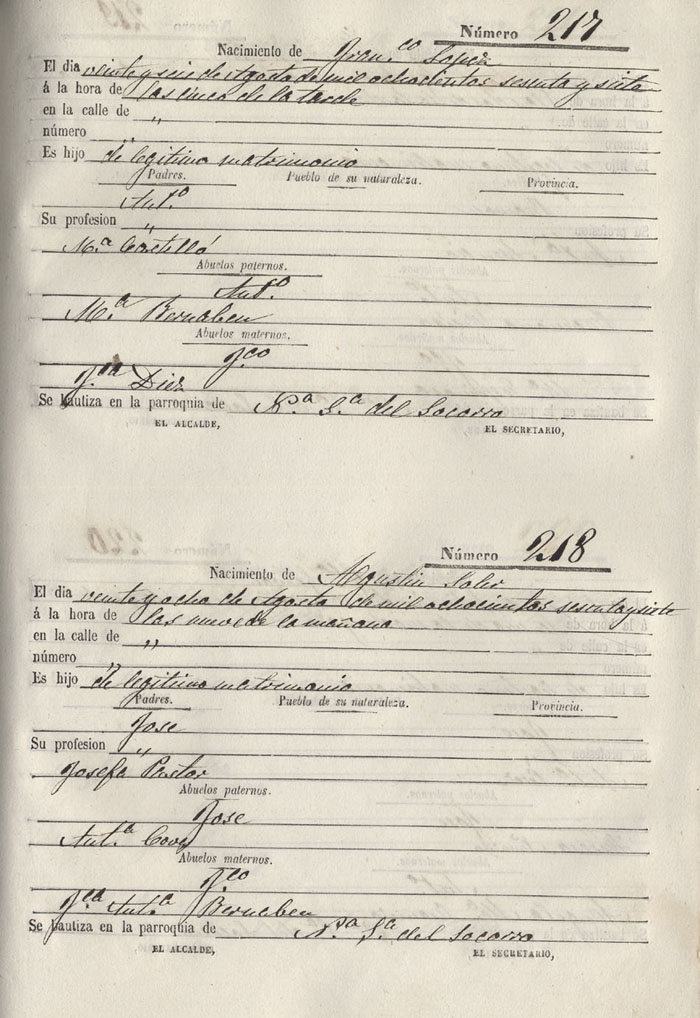 Número 217
Nacimiento de Fran.co Lopez
El dia veinte y seis de Agosto de mil ochocientos sesenta y siete
á la hora de las cinco de la tarde
en la calle de "
número "
Es hijo de legitimo matrimonio
Padres. Pueblo de su naturaleza. Provincia.
Ant.o
Su profesion "
M.a Castelló
Abuelos paternos.
Ant.o
M.a Bernabeu
Abuelos maternos.
F.co
F.ca Diez
Se bautiza en la parroquia de N.a S.a del Socorro
EL ALCALDE, EL SECRETARIO,
Número 218
Nacimiento de Agustin Soler
El dia veinte y ocho de Agosto de mil ochocientos sesenta y siete
á la hora de las nueve de la mañana
en la calle de "
número "
Es hijo de legitimo matrimonio
Padres. Pueblo de su naturaleza. Provincia.
Jose
Su profesion "
Josefa Pastor
Abuelos paternos.
Jose
Ant.a
Abuelos maternos.
F.co
F.ca Ant.a Bernabeu
Se bautiza en la parroquia de N.a S.a del Socorro
EL ALCALDE, EL SECRETARIO,